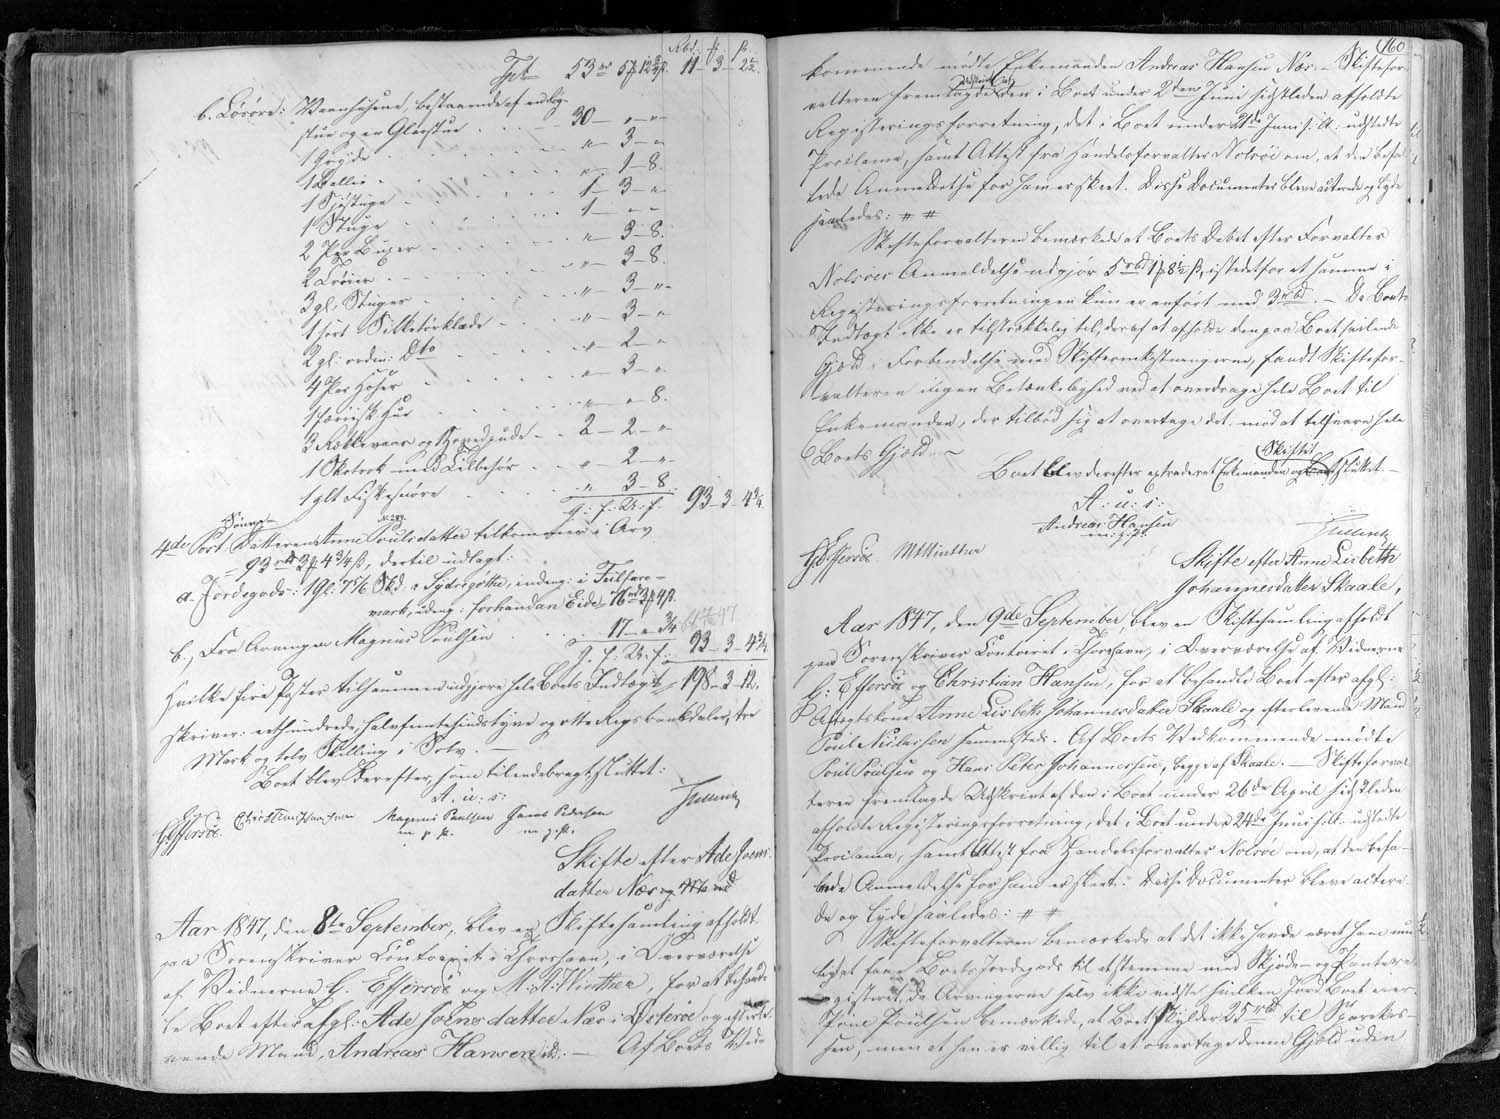 Rbd. ₰ ß
Tpt 53 rd 5 ₰ 12 ß. 11 - 3 - 2½.
b. Løsøre: Vaanhusene, bestaaende af en Røg-
stue og en Glasstue . . . 30 - " - "
1 Gryde . . . " - 3 - "
1 Ballie . . . " - 1 - 8.
1 Sjøstuge . . . 1 - 3 - "
1 Stuge . . . 1 - " - "
2 Par Buxer . . . " - 3 - 8.
2 Trøier . . . " - 3 - 8.
3 gl. Stuger . . . " - 3 - "
1 sort Silketørklæde . . . " - 3 - "
2 gl: orden: Dto . . . " - 2 - "
4 Par Hoser . . . " - 3 - "
1 færøisk Hue . . . " - " - 8.
3 og Hovedpude . . 2 - 2 - "
1 Skotrok med Tilbehør . . " - 2 - "
1 glt Fiskesnøre . . . " 3 - 8.
93 - 3 - 4¾.
4de Post. Datteren Anne Poulsdatter tilkommer i Arv
93 rd 3 ₰ 4¾ ß, dertil udlagt:
a. Jordegods: 1 Gl: 7 5/6 Skd. i Sydregøthe, indeng: i
mark, udeng: forhandan Eide 76 rd 3 ₰ 4 ß.
b., Fra Arvingen Magnus Poulsen . . . 17 - " - ¾
93 - 3 - 4¾
Hvilke fire Poster tilsammen udgjøre hele Boets Indtægt 198 - 3 - 12.
skriver: eethundrede, halvfemtesindstyve og otte Rigsbankdaler, tre
Mark og tolv Skilling i Sølv. —
Boet blev derefter, som tilendebragt, sluttet:
A: u: s:
G. Effersøe. Magnus Poulsen Joens Pedersen
m. p. P. m. p. P.
Skifte efter Ade Joens-
datter Næs og
Aar 1847, den 8de September, blev en Skiftesamling afholdt
paa Sorenskriver Contoiret i Thorshavn, i Overværelse
af Vidnerne G. Effersøe og M. A. Winther, for at behand-
le Boet efter afgl: Ade Joensdatter Næs i Østerøe og efterle-
vende Mand, Andreas Hansen ib. — Af Boets Ved-
160
kommende mødte Enkemanden Andreas Hansen Næs. — Skiftefor-
valteren fremlagde den i Boet under 2den Juni sidstleden afholdte
Registeringsforretning, det i Boet under 21de Juni s: A: udstedte
Proclama, samt Attest fra Handelsforvalter Nolsøe om, at den befa-
lede Anmeldelse for ham er skeet. Disse Documenter bleve acterede og lyde
saaledes: # #
Skifteforvalteren bemærkede at Boets Debet efter Forvalter
Nolsøes Anmeldelse udgjør 5 rbd 1 ₰ 8½ ß, istedetfor at samme i
Registeringsforretningen kun er anført med 3 rbd. — Da Boets
Indtægt ikke er tilstrækkelig til, deraf at afholde den paa Boet hvilende
Gjæld i Forbindelse med Skifteomkostningerne, fandt Skiftefor-
valteren ingen Betænkelighed ved at overdrage hele Boet til
Enkemanden, der tilbød sig at overtage det, mod at tilsvare hele
Boets Gjæld. —
Boet blev derefter extraderet Enkemanden og Skiftet sluttet. —
A: u: s:
Andreas Hansen
G. Effersøe. M A Winther
Skifte efter Anne Lisbeth
Johannesdatter Skaale,
Aar 1847, den 9de September, blev en Skiftesamling afholdt
paa Sorenskriver Contoiret i Thorshavn, i Overværelse af Vidnerne
G: Effersøe og Christian Hansen, for at behandle Boet efter afgl:
Aftegtskone Anne Lisbeth Johannesdatter Skaale og efterlevende Mand
Poul sammesteds. Af Boets Vedkommende mødte
Poul Poulsen og Hans Peter Johannessen, begge af Skaale. — Skifteforval-
teren fremlagde Udskrivt af den i Boet under 26de April sidstleden
afholdte Registeringsforretning, det i Boet under 24de Juni s: A: udstedte
Proclama, samt Attest fra Handelsforvalter Nolsøe om, at den befa-
lede Anmeldelse for ham er skeet. Disse Documenter bleve actere-
de og lyde saaledes: # #
Skifteforvalteren bemærkede at det ikke havde været ham mu-
ligt at faae Boets Jordegods til at stemme med Skjøde- og Pantere-
gisteret, da Arvingerne selv ikke vidste hvilken Jord Boet eier.
Poul Poulsen bemærkede, at Boet skylder 25 rbd til
sen, men at han er villig til at overtage denne Gjæld uden